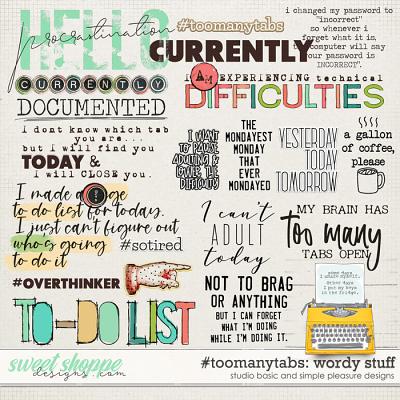 HELLO
procrastination
#toomanytabs
i changed my password to
"incorrect"
so whenever i
forget what it is,
the computer will say
"your password is
INCORRECT".
CURRENTLY
CURRENTLY
DOCUMENTED
I AM EXPERIENCING technical
DIFFICULTIES
I dont know which tab
you are...
but i will find you
TODAY &
I will CLOSE you.
I WANT
TO PAUSE
ADULTING &
LOWER THE
DIFFICULTY
THE
MONDAYEST
MONDAY
THAT
EVER
MONDAYED
YESTERDAY
TODAY
TOMORROW
a gallon
of coffee,
please
I made a huge
to do list for today.
I just can't figure out
who's going
to do it
#sotired
I can't
ADULT
today
MY BRAIN HAS
too many
TABS OPEN
#OVERTHINKER
TO-DO LIST
NOT TO BRAG
OR ANYTHING
BUT I CAN FORGET
WHAT I'M DOING
WHILE I'M DOING IT.
some days
Other days
I put my keys
in the fridge.
sweet shoppe
designs.com
#toomanytabs: wordy stuff
studio basic and simple pleasure designs